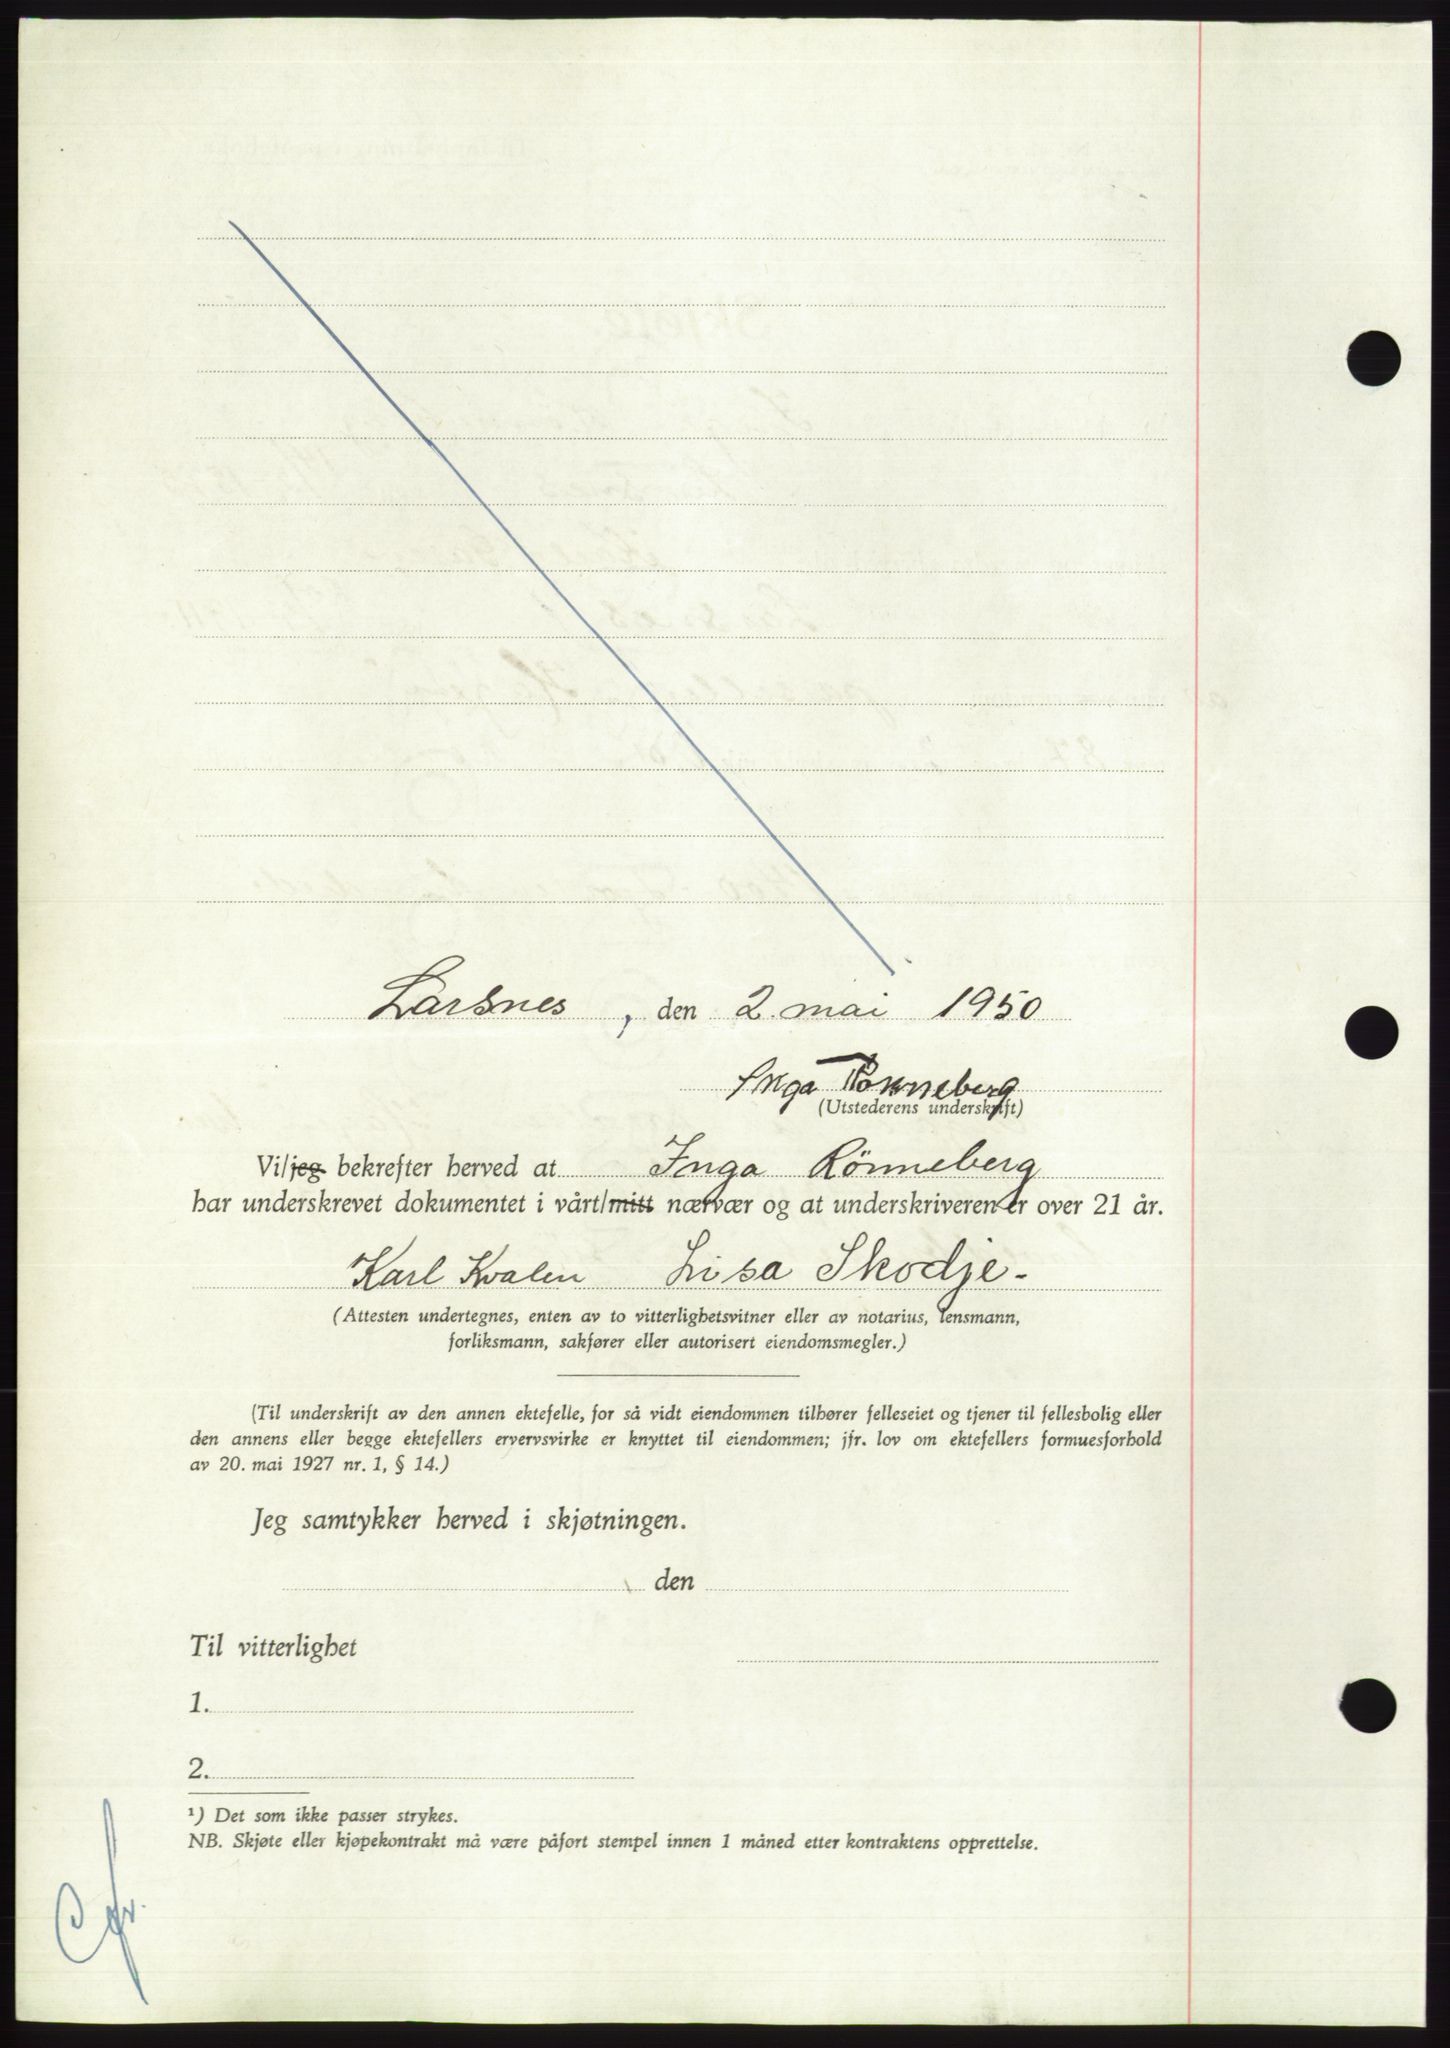 Larsnes, den 2. mai 1950
Inga Rønneberg
(Utstederens underskrift)
Vi/jeg bekrefter herved at Inga Rönneberg
har underskrevet dokumentet i vårt/mitt nærvær og at underskriveren er over 21 år.
Karl Kvalen Lisa Skodje.
(Attesten undertegnes, enten av to vitterlighetsvitner eller av notarius, lensmann,
forliksmann, sakfører eller autorisert eiendomsmegler.)
(Til underskrift av den annen ektefelle, for så vidt eiendommen tilhører felleseiet og tjener til fellesbolig eller
den annens eller begge ektefellers ervervsvirke er knyttet til eiendommen; jfr. lov om ektefellers formuesforhold
av 20. mai 1927 nr. 1, § 14.)
Jeg samtykker herved i skjøtningen.
, den
Til vitterlighet
1.
2.
¹) Det som ikke passer strykes.
NB. Skjøte eller kjøpekontrakt må være påført stempel innen 1 måned etter kontraktens opprettelse.